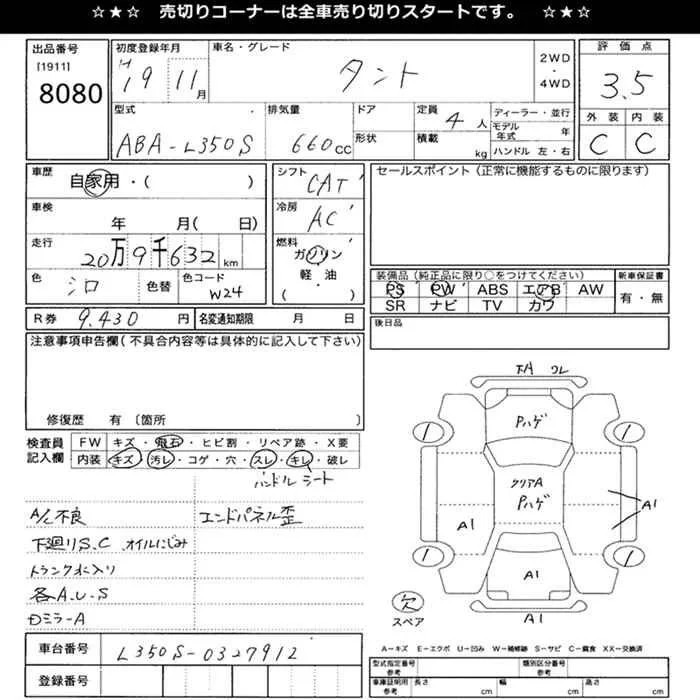 ☆★☆ 売切りコーナーは全車売り切りスタートです。 ☆★☆
出品番号
[1911]
8080
初度登録年月
H19 11月
車名・グレード
タント
2WD
・
4WD
評価点
3.5
外装 内装
C C
型式
ABA-L350S
排気量
660cc
ドア
形状
定員 4人
積載 kg
ディーラー・並行
モデル年式 年
ハンドル 左・右
車歴
自家用・( )
シフト
CAT
セールスポイント(正常に機能するものに限ります)
車検
年 月( 日)
冷房
AC
走行
20万9千632km
燃料
ガソリン
軽・油
( )
色
シロ
色替
色コード
W24
装備品(純正品に限り○をつけてください)
PS PW ABS エアB AW
SR ナビ TV カワ
新車保証書
有・無
R券 9.430円
名変通知期限 月 日
後日品
注意事項申告欄(不具合内容等は具体的に記入して下さい)
修復歴 有〔箇所
検査員記入欄
FW キズ・飛石・ヒビ割・リペア跡・X要
内装 キズ・汚レ・コゲ・穴・スレ・キレ・破レ
ハンドル シート
A/C不良
エンドパネル歪
下廻りS.C オイルにじみ
トランク水入り
各A.U.S
Dミラー A
車台番号
L350S-0327912
登録番号
下A ワレ
Pハゲ
クリアA
Pハゲ
1
1
1
1
A1
A1
A1
A1
欠
スペア
A-キズ E-エクボ U-凹み W-補修跡 S-サビ C-腐食 XX-交換済
型式指定番号
参考
類別区分番号
参考
車庫証明用
参考
長さ cm
幅 cm
高さ cm